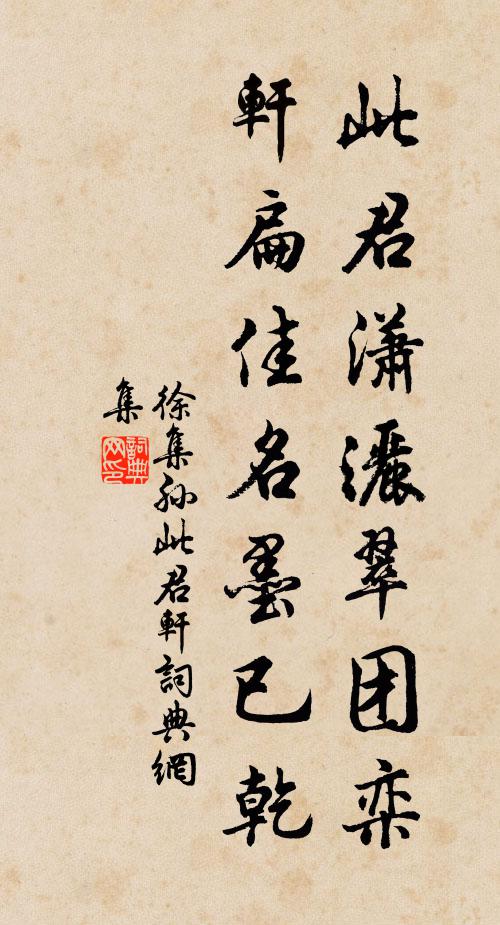 此君瀟灑翠团栾
軒扁佳名墨已乾
徐集孙此君軒詞典網
集
詞典网印